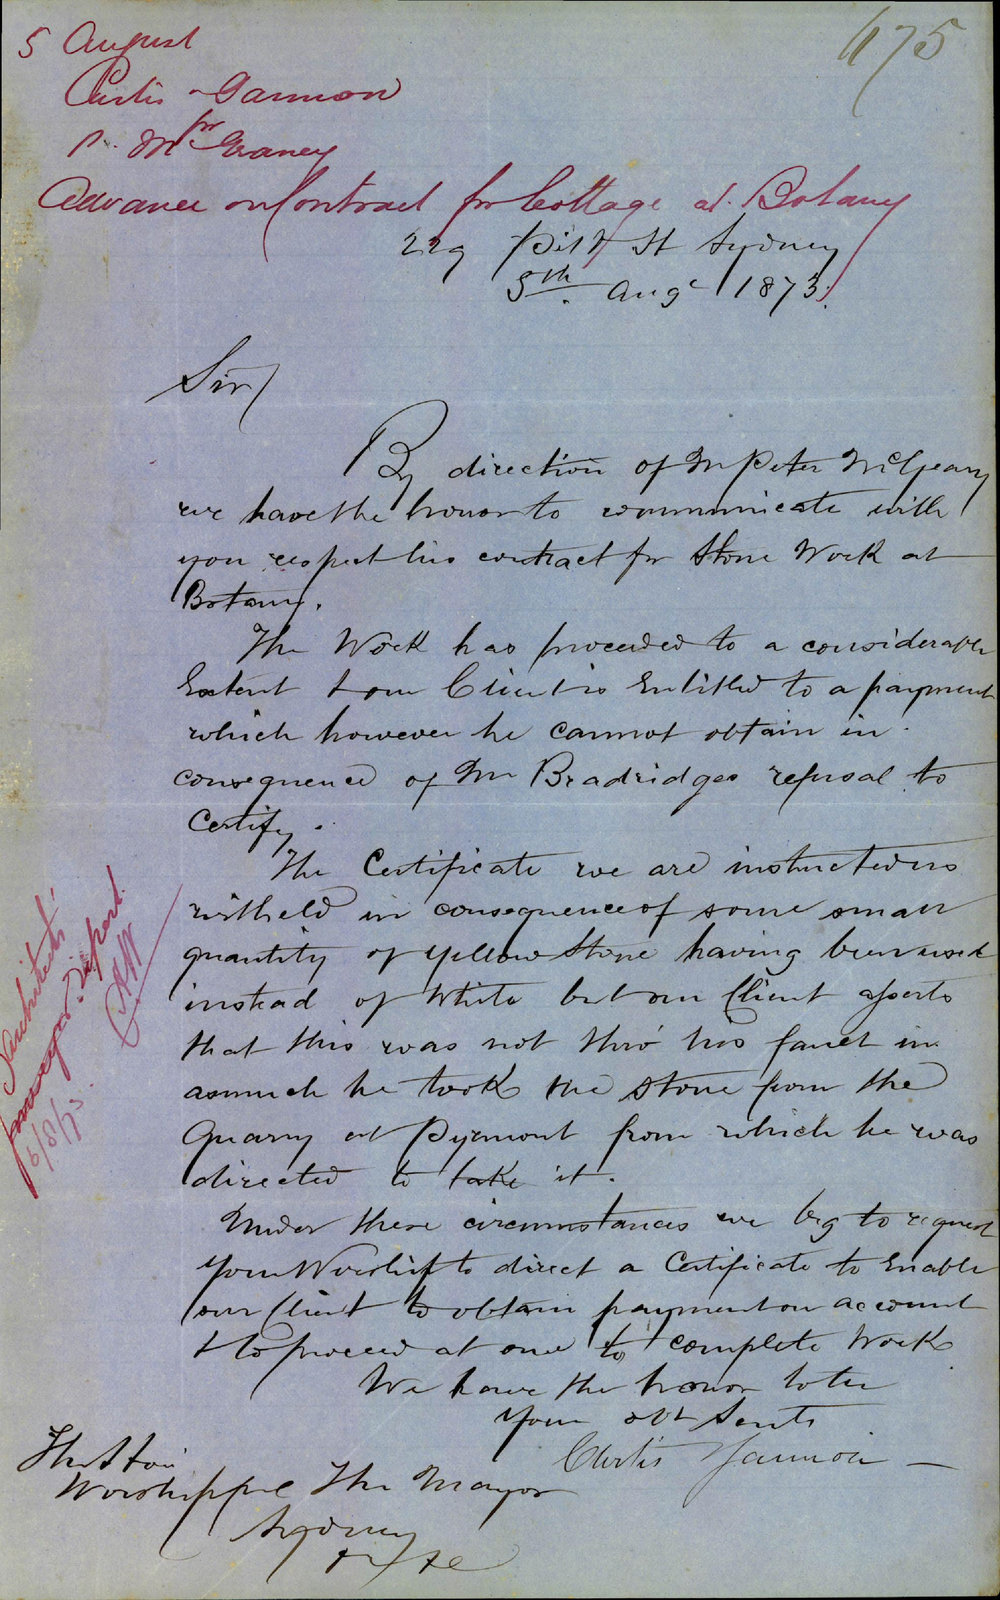 675
5 August
Curtis Gannon
pr McGeaney
Advance on Contract for Cottage at Botany
229 Pitt St Sydney
5th Augt 1873.
Sir/
By direction of Mr Peter McGeany
we have the honor to communicate with
you respect his contract for Stone Work at
Botany.
The Work has proceeded to a considerable
Extent & our Client is Entitled to a payment
which however he cannot obtain in
consequence of Mr Bradridges refusal to
Certify.
The Certificate we are instructed is
witheld in consequence of some small
quantity of Yellow Stone having been used
instead of White but our Client asserts
that this was not thro' his fault in
asmuch he took the stone from the
Quarry at Pyrmont from which he was
directed to take it.
Under these circumstances we beg to request
Your Worship to direct a Certificate to Enable
our Client to obtain payment on account
& to proceed at once to complete Work
We have the honor to be
Your obt Servts
Curtis Gannon
The Right
Worshipful The Mayor
Sydney
&c &c
Architects'
progress Report
6/8/73